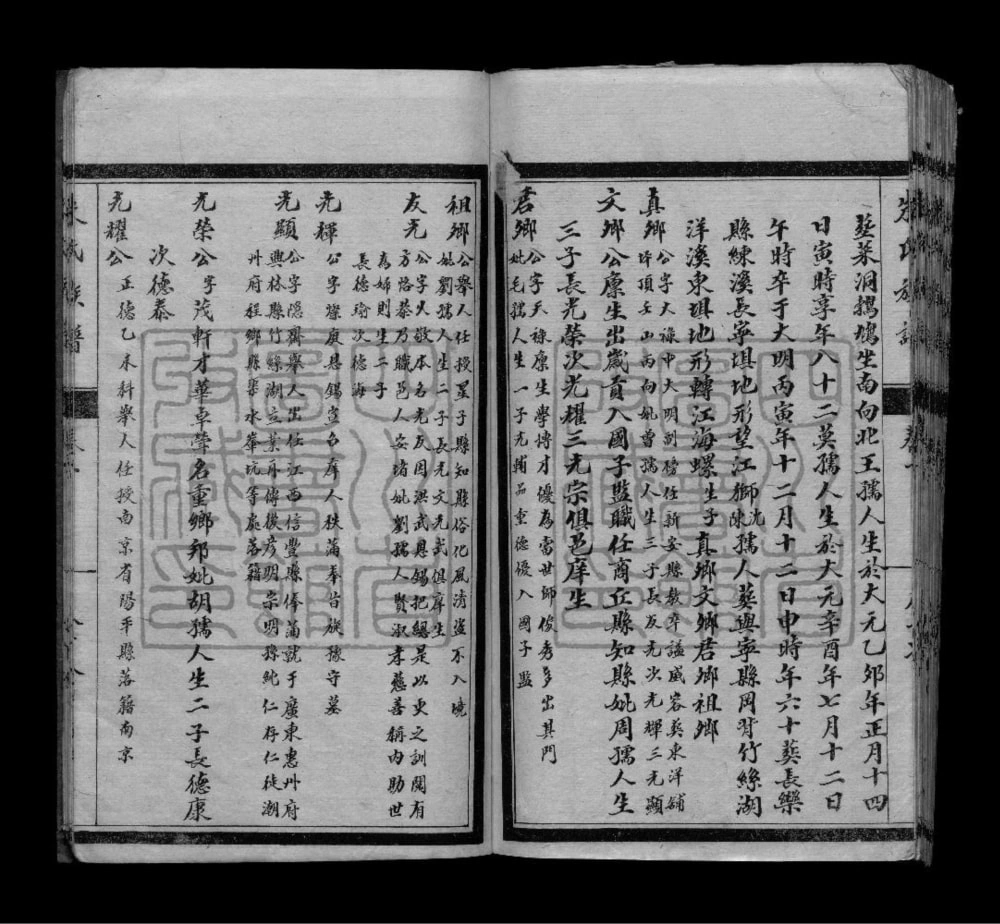 朱氏族譜
葬菜洞鵝鳩生南向北王孺人生於大元乙卯年正月十四
日寅時享年八十二莫孺人生於大元辛酉年七月十二日
午時卒于大明丙寅年十二月十二日申時年六十葬長樂
縣練溪長寧埧地形望江獅沈陳孺人葬興寧縣岡背竹絲湖
洋溪東埧地形轉江海螺生子真鄉文鄉君鄉祖鄉
真鄉公字大祿中大明副榜任新安縣教卒謚咸容葬東洋鋪
坪頂壬山丙向妣曾孺人生三子長友光次光輝三光顯
文鄉公廪生出歲貢入國子監職任商丘縣知縣妣周孺人生
三子長光榮次光耀三光宗俱邑庠生
君鄉公字天祿廪生學博才優為當世師俊秀多出其門
妣毛孺人生一子光輔品重德優入國子監
祖鄉公舉人任授星子縣知縣俗化風清盜不入境
妣劉孺人生二子長光文光武俱庠生
友光公字火敬本名光友因洪武恩錫把總是以更之訓閱有
方路泰乃職邑人安堵妣劉孺人賢淑孝慈善稱內助世
為婦則生二子
長德琦次德海
光輝公字燦庭恩錫宣台庠人秩蒲奉旨族豫守墓
光顯公字隱齋舉人出任江西信豐縣俸蒲就于廣東惠州府
興林縣竹絲湖立業耳傳後彥明宗明豫純仁存仁徒潮
州府程鄉縣渠水峯坑等處落籍
光榮公字茂軒才華卓犖名重鄉邦妣胡孺人生二子長德康
次德泰
光耀公正德乙未科舉人任授南京省陽平縣落籍南京
朱氏族譜